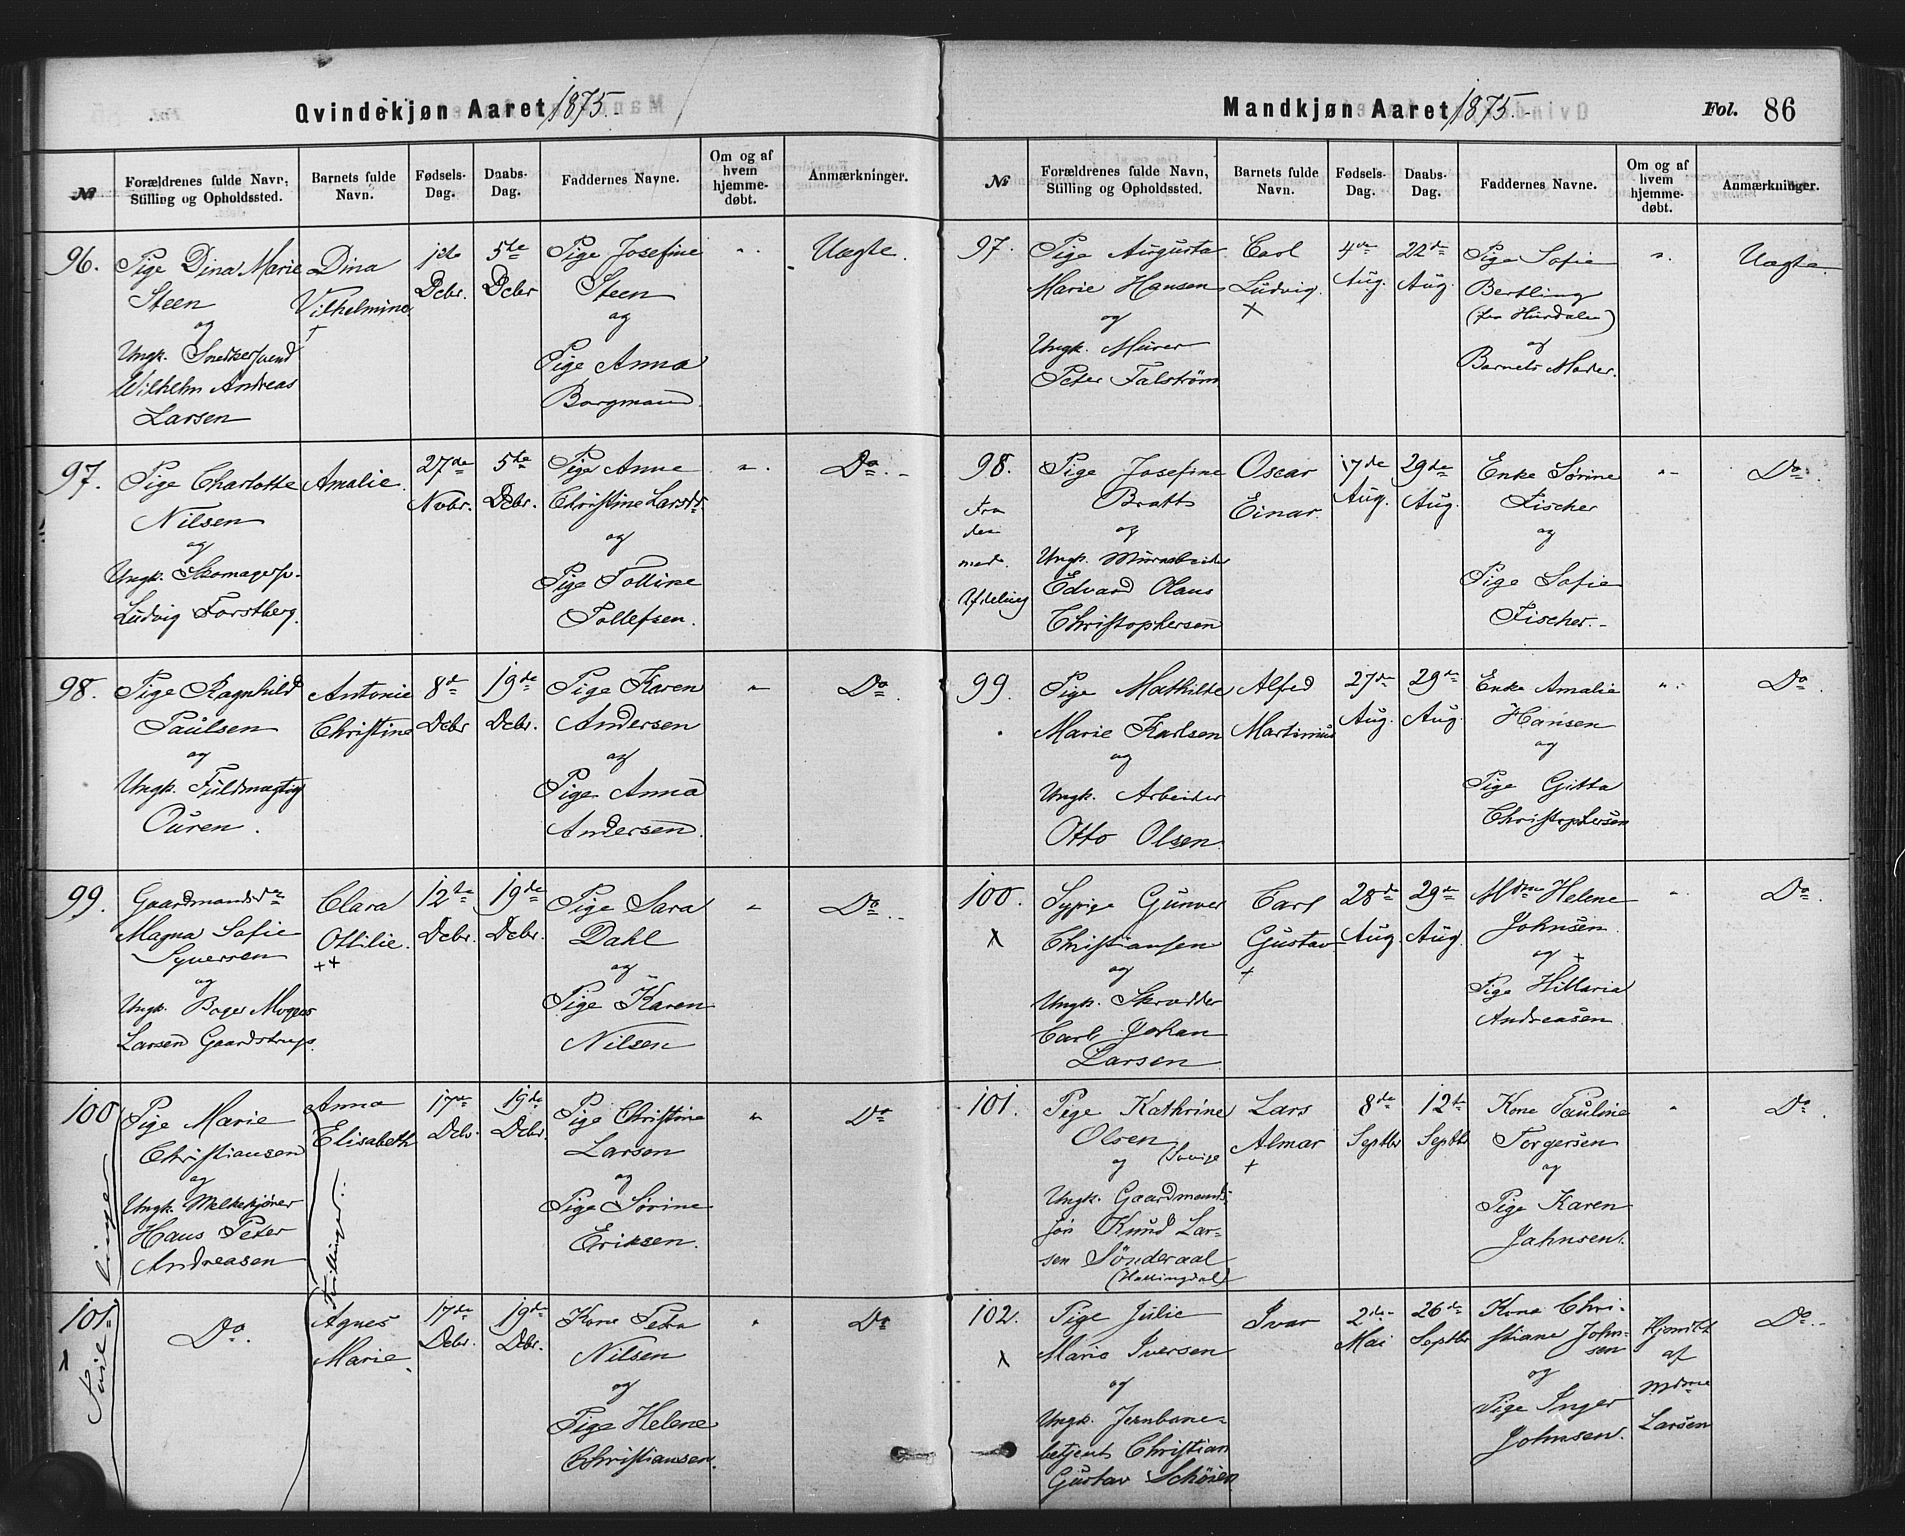 Qvindekjøn Aaret 1875.
№
Forældrenes fulde Navn, Stilling og Opholdssted.
Barnets fulde Navn.
Fødsels-Dag.
Daabs-Dag.
Faddernes Navne.
Om og af hvem hjemme-døbt.
Anmærkninger.
96.
Pige Dina Marie
Steen
og
Ungk. Snedkersvend
Wilhelm Andreas
Larsen
Dina
Vilhelmine
†
1ste
Dcbr.
5te
Dcbr
Pige Josefine
Steen
og
Pige Anna
Borgmand.
"
Uægte.
97.
Pige Charlotte
Nilsen
og
Ungk. Skomagersv.
Ludvig Forstberg.
Amalie.
27de
Nvbr.
5te
Dcbr.
Pige Anne
Christine Larsdr
og
Pige Tolline
Tollefsen.
"
Do.
98.
Pige Ragnhild
Paulsen
og
Ungk. Fuldmægtig
Ouren.
Antonie
Christine
8de
Dcbr
19de
Dcbr.
Pige Karen
Andersen
og
Pige Anna
Andersen.
"
Do.
99.
Gaardmandsda
Magna Sofie
Syversen
og
Ungk. Boger Mogens
Larsen Gaardstrup.
Clara
Ottilie.
++
12te
Dcbr.
19de
Dcbr.
Pige Sara
Dahl
og
Pige Karen
Nilsen
"
Do.
100
Pige Marie
Christiansen
og
Ungk. Melkekjører
Hans Peter
Andreasen
Anna
Elisabeth
17de
Dcbr.
19de
Dcbr.
Pige Christine
Larsen
og
Pige Sørine
Eriksen.
"
Do
101.
Tvillinger
Tvillinger.
Do.
Agnes
Marie.
17de
Dcbr.
19de
Dcbr.
Kone Petra
Nilsen
og
Pige Helene
Christiansen.
"
Do
Mandkjøn Aaret 1875.
Fol. 86
№
Forældrenes fulde Navn, Stilling og Opholdssted.
Barnets fulde Navn.
Fødsels-Dag.
Daabs-Dag.
Faddernes Navne.
Om og af hvem hjemme-døbt.
Anmærkninger.
97.
Pige Augusta
Marie Hansen
og
Ungk. Murer
Peter Falstrøm
Carl
Ludvig.
+
4de
Aug.
22de
Aug.
Pige Sofie
Bertling
(fra Hurdalen)
og
Barnets Moder.
"
Uægte.
98.
Fra
den
med.
Afdeling
Pige Josefine
Bratt
og
Ungk. Murarbeider
Edvard Olaus
Christophersen
Oscar
Einar.
17de
Aug.
29de
Aug.
Enke Sørine
Fischer
og
Pige Sofie
Fischer.
"
Do.
99.
Pige Mathilde
Marie Karlsen
og
Ungk. Arbeider
Otto Olsen.
Alfred
Martinius
27de
Aug.
29de
Aug.
Enke Amalie
Hansen
og
Pige Gitta
Christophersen
"
Do.
100.
Sypige Gunver
Christiansen
og
Ungk. Skrædder
Carl Johan
Larsen
Carl
Gustav
+
28de
Aug.
29de
Aug.
Mdme Helene
Johnsen
og +
Pige Hillaria
Andreasen.
"
Do.
101.
Pige Kathrine
Olsen
og
Ungk. Gaardmands-
søn Knud Lar-
sen Sønderaal
(Hallingdal)
Lars
Almar
+
8de
Septbr
12te
Septbr
Kone Pauline
Torgersen
og
Pige Karen
Jahnsen.
"
Do.
102.
Pige Julie
Marie Iversen
og
Ungk. Jernbane-
betjent Christian
Gustav Schøien
Ivar
2den
Mai
26de
Septbr
Kone Chri-
stiane John-
sen
og
Pige Inger
Johnsen.
Hjemdbt
af
Mdme
Larsen
Do.